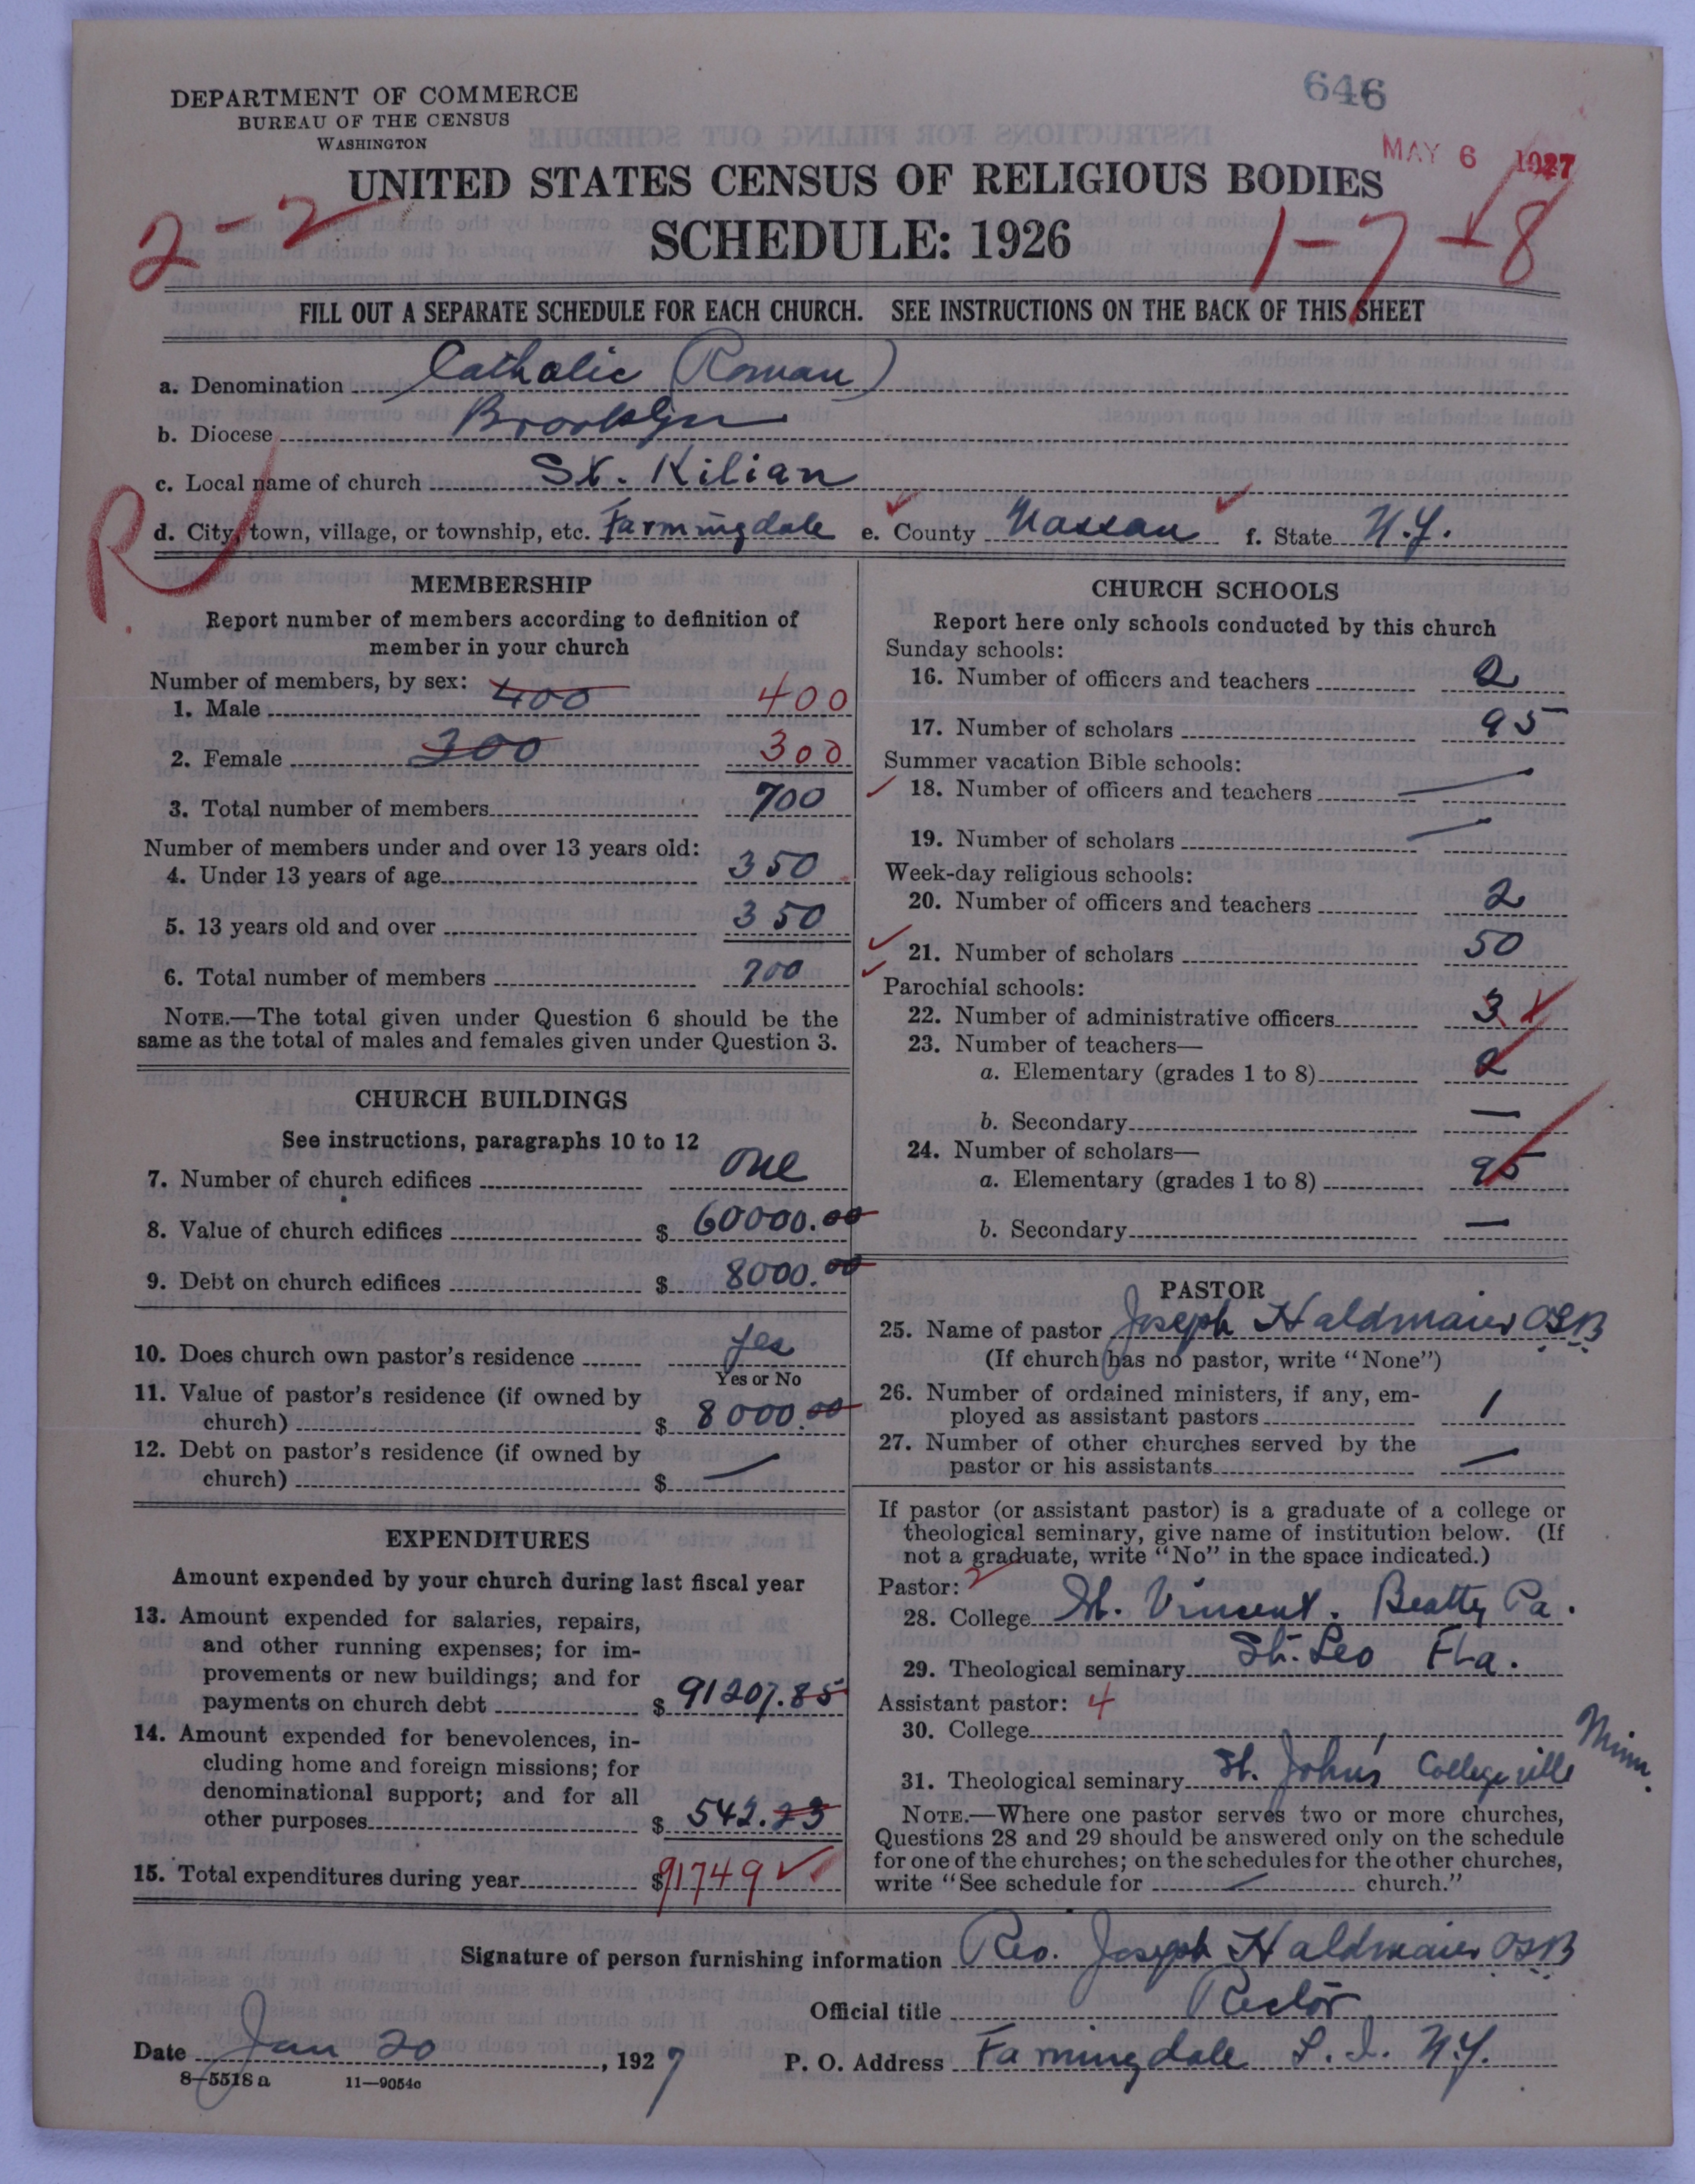 646
MAY 6 1927
DEPARTMENT OF COMMERCE
BUREAU OF THE CENSUS
WASHINGTON
UNITED STATES CENSUS OF RELIGIOUS BODIES
SCHEDULE: 1926
2-2
1-7-8
FILL OUT A SEPARATE SCHEDULE FOR EACH CHURCH. SEE INSTRUCTIONS ON THE BACK OF THIS SHEET
a. Denomination Catholic (Roman)
b. Diocese Brooklyn
c. Local name of church St. Kilian
R
d. City, town, village, or township, etc. Farmingdale e. County Nassau f. State N.Y.
MEMBERSHIP
Report number of members according to definition of
member in your church
Number of members, by sex:
1. Male 400 400
2. Female 300 300
3. Total number of members 700
Number of members under and over 13 years old:
4. Under 13 years of age 350
5. 13 years old and over 350
6. Total number of members 700
NOTE.—The total given under Question 6 should be the
same as the total of males and females given under Question 3.
CHURCH BUILDINGS
See instructions, paragraphs 10 to 12
7. Number of church edifices one
8. Value of church edifices $ 60000.00
9. Debt on church edifices $ 8000.00
10. Does church own pastor's residence yes
Yes or No
11. Value of pastor's residence (if owned by
church) $ 8000.00
12. Debt on pastor's residence (if owned by
church) $ —
EXPENDITURES
Amount expended by your church during last fiscal year
13. Amount expended for salaries, repairs,
and other running expenses; for im-
provements or new buildings; and for
payments on church debt $ 91207.85
14. Amount expended for benevolences, in-
cluding home and foreign missions; for
denominational support; and for all
other purposes $ 542.23
15. Total expenditures during year $91749
CHURCH SCHOOLS
Report here only schools conducted by this church
Sunday schools:
16. Number of officers and teachers 2
17. Number of scholars 95
Summer vacation Bible schools:
18. Number of officers and teachers —
19. Number of scholars —
Week-day religious schools:
20. Number of officers and teachers 2
21. Number of scholars 50
Parochial schools:
22. Number of administrative officers 3
23. Number of teachers—
a. Elementary (grades 1 to 8) 2
b. Secondary —
24. Number of scholars—
a. Elementary (grades 1 to 8) 95
b. Secondary —
PASTOR
25. Name of pastor Joseph Haldmaier OSB
(If church has no pastor, write "None")
26. Number of ordained ministers, if any, em-
ployed as assistant pastors 1
27. Number of other churches served by the
pastor or his assistants —
If pastor (or assistant pastor) is a graduate of a college or
theological seminary, give name of institution below. (If
not a graduate, write "No" in the space indicated.)
Pastor: 2
28. College St. Vincent. Beatty Pa.
29. Theological seminary St. Leo Fla.
Assistant pastor: 4
30. College
31. Theological seminary St. John's Collegeville Minn.
NOTE.—Where one pastor serves two or more churches,
Questions 28 and 29 should be answered only on the schedule
for one of the churches; on the schedules for the other churches,
write "See schedule for — church."
Signature of person furnishing information Rev. Joseph Haldmaier OSB
Official title Rector
Date Jan 20, 1927 P. O. Address Farmingdale L.I. N.Y.
8—5518a 11—9054c